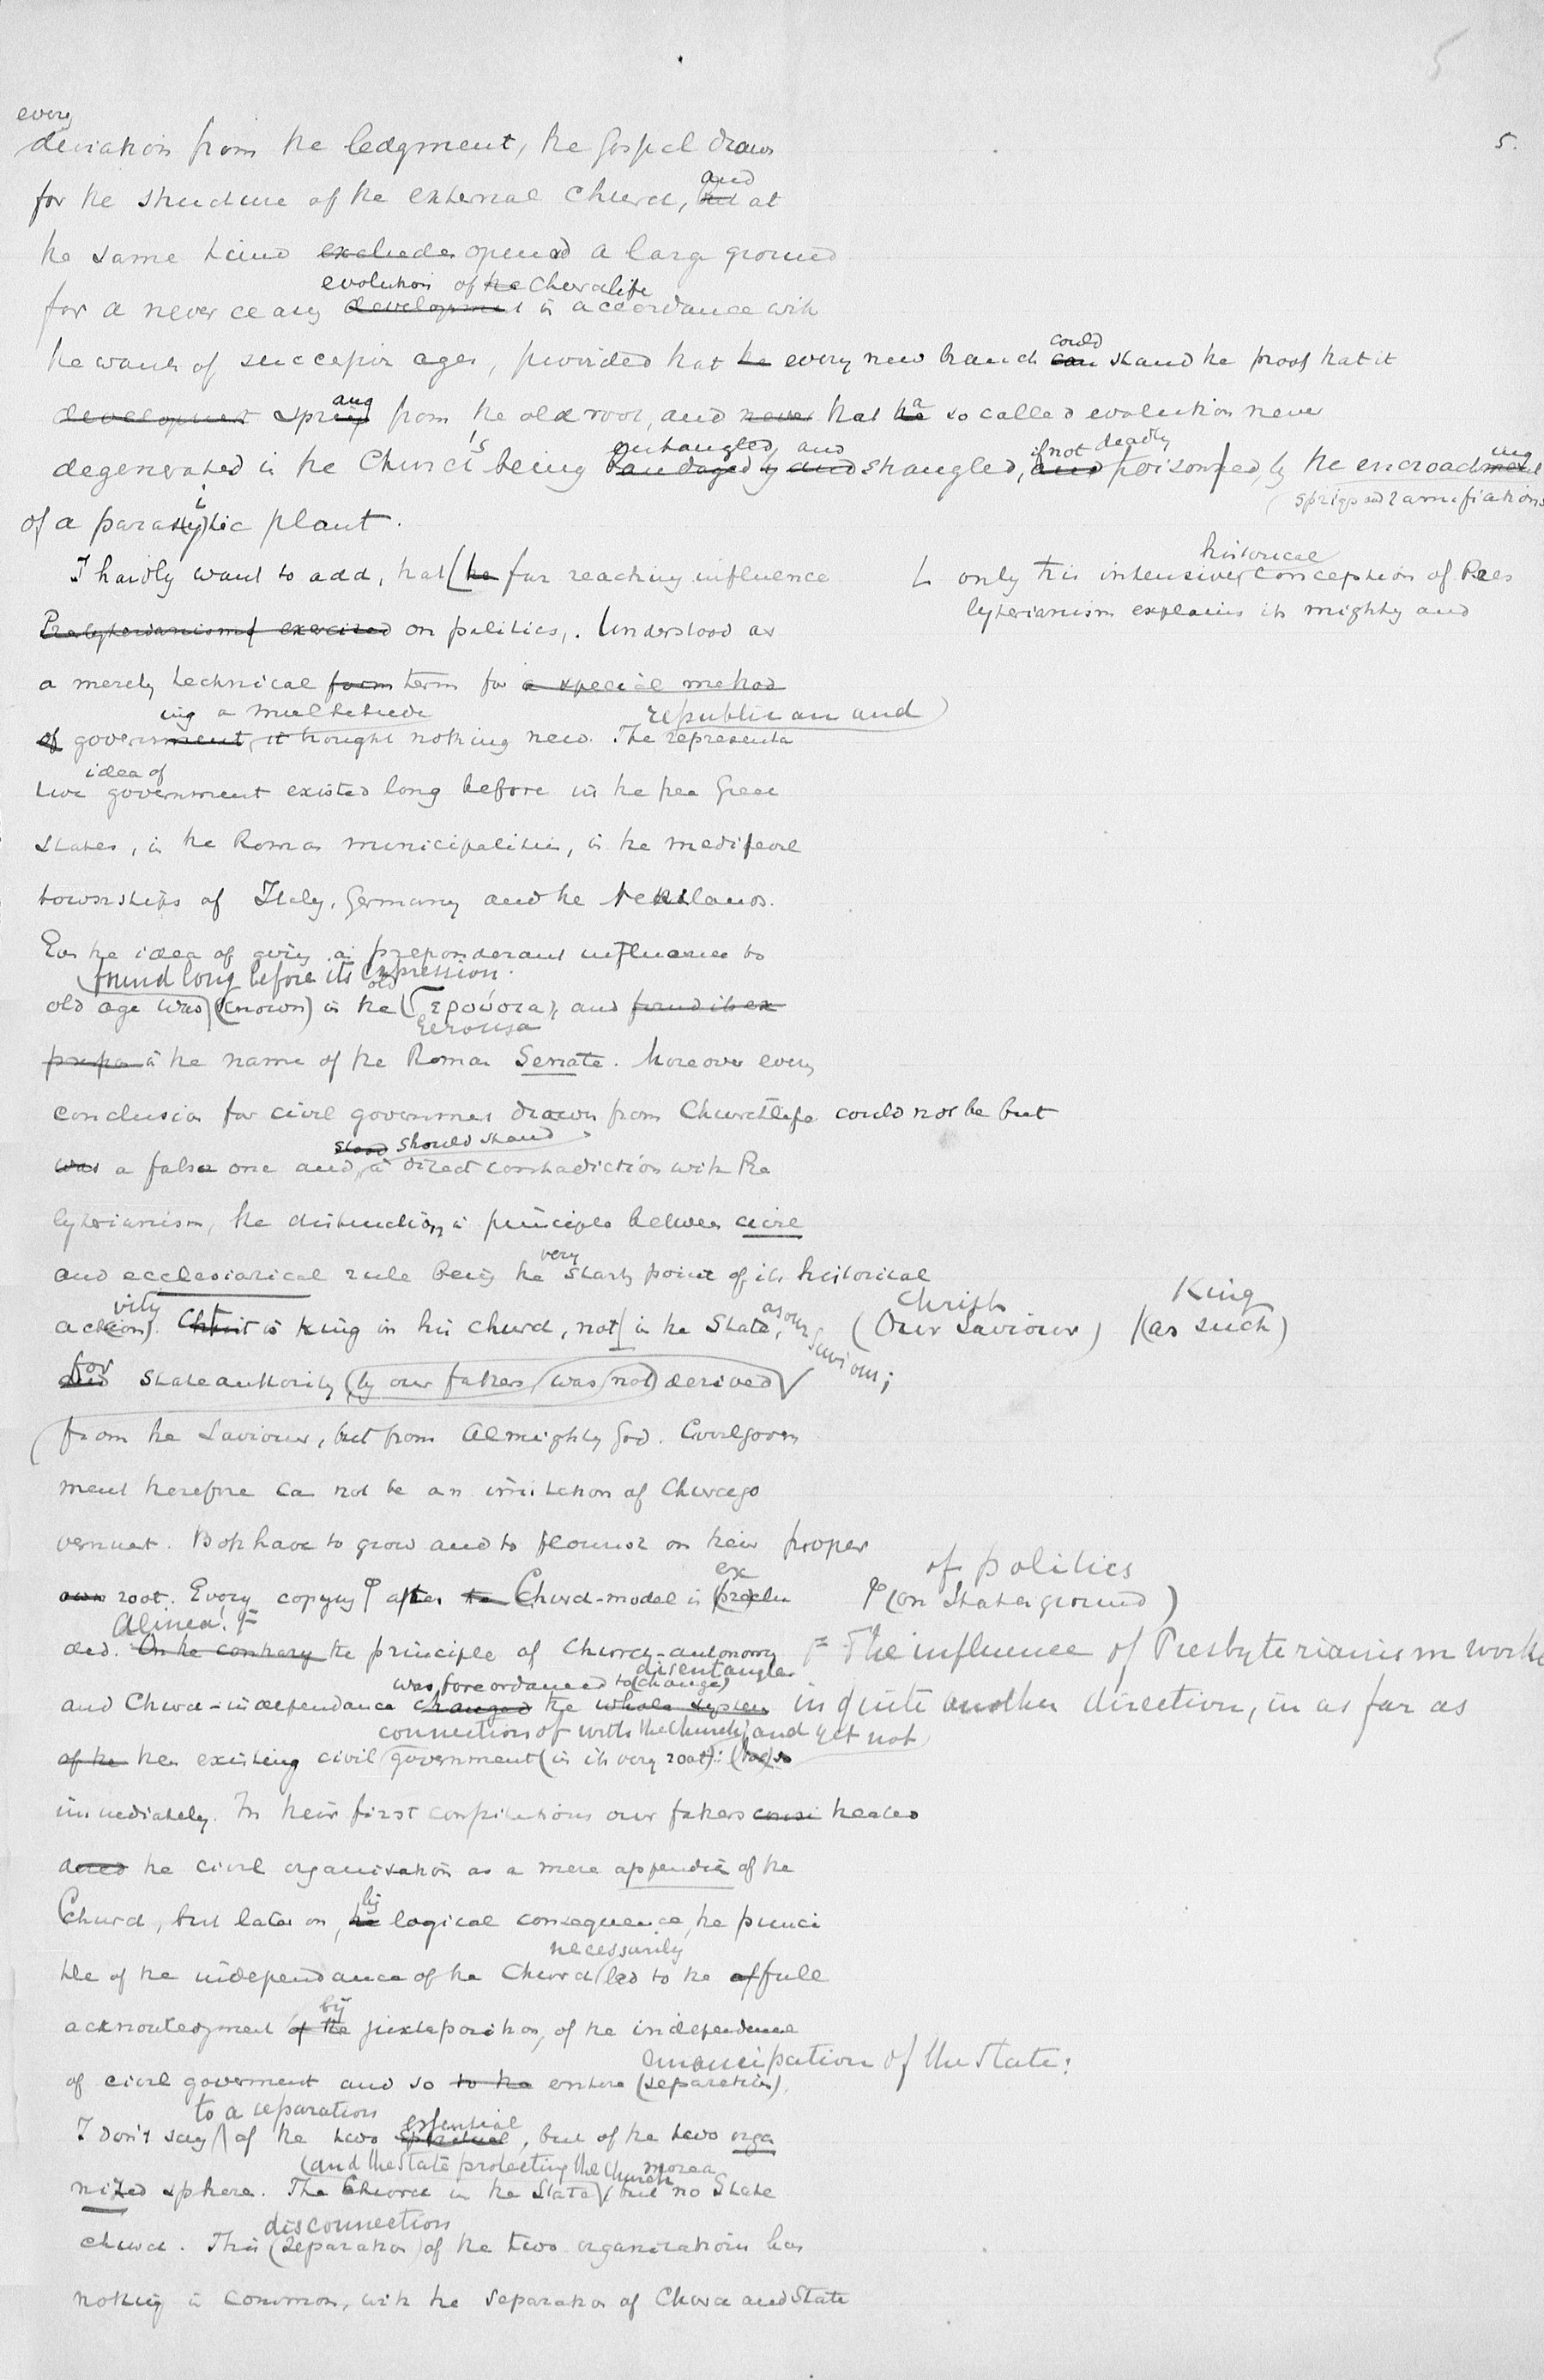 5
5.
every
deviation from the ledgment, the Gospel draws
for the structure of the external Church, but and at
the same time excludes opened a large ground
evolution of the Churchlife
for a never ceasing development in accordance with
could
the wants of successive ages, provided that the every new branch can stand the proof that it
development sprang from the old root, and never that the a so called evolution never
entangled and if not deadly
degenerated in the Church's being bandaged by and strangled, and poisoned, by the encroaching
springs and ramifications
of a parasitic plant.
historical
I hardly want to add, that the far reaching influence
only this intensive conception of Pres
byterianism explains its mighty and
Presbyterianism exercised on politics,. Understood as
a merely technical form term for a special method
ing a multitude republican and
of government, it brought nothing new. The representa
idea of
tive government existed long before in the free Greec
states, in the Roman municipalities, in the medieval
townships of Italy, Germany and the Netherlands.
Even the idea of giving a preponderant influence to
found long before its expression.
old age was (known) in the old Γερούσια, and found its ex
Gerousia
pression in the name of the Roman Senate. Moreover every
conclusion for civil government drawn from Churchlife could not be but
stood should stand
was a false one and, in direct contradiction with Pres
byterianism, the distinction in principle between civil
very
and ecclesiastical rule being the starting point of its historical
vity
action. Christ is King in his Church, not in the State, as our Saviour;
Christ King
(Our Saviour) (as such)
for
and State authority (by our fathers (was (not) derived)
from the Saviour, but from Almighty God. Civil govern
ment therefore can not be an imitation of Churchgo
vernment. Both have to grow and to flourish on their proper
of politics
own root. Every copying after the Church-model is (pre) ex clu
(on State ground)
Alinea.
ded. On the contrary the principle of Church-autonomy
The influence of Presbyterianism works
was foreordained to (change) disentangle
and Church-independance changed the whole system
in quite another direction, in as far as
connection of with the Church, and yet not
of the then existing civil government (in its very root): (too) so
immediately. In their first constitutions our fathers consi treated
dered the civil organisation as a mere appendix of the
Church, but later on, the by logical consequence, the princi
necessarily
ple of the independance of the Church led to the of full
by
acknowledgment of the juxtaposition, of the independence
emancipation of the State:
of civil government and so to the entire (separation),
to a separation
I don't say of the two spiritual essential, but of the two orga
(and the State protecting the Church more a
nized sphere. The Church in the State, but no State
disconnection
church. This (separation) of the two organizations has
nothing in common, with the separation of Church and State